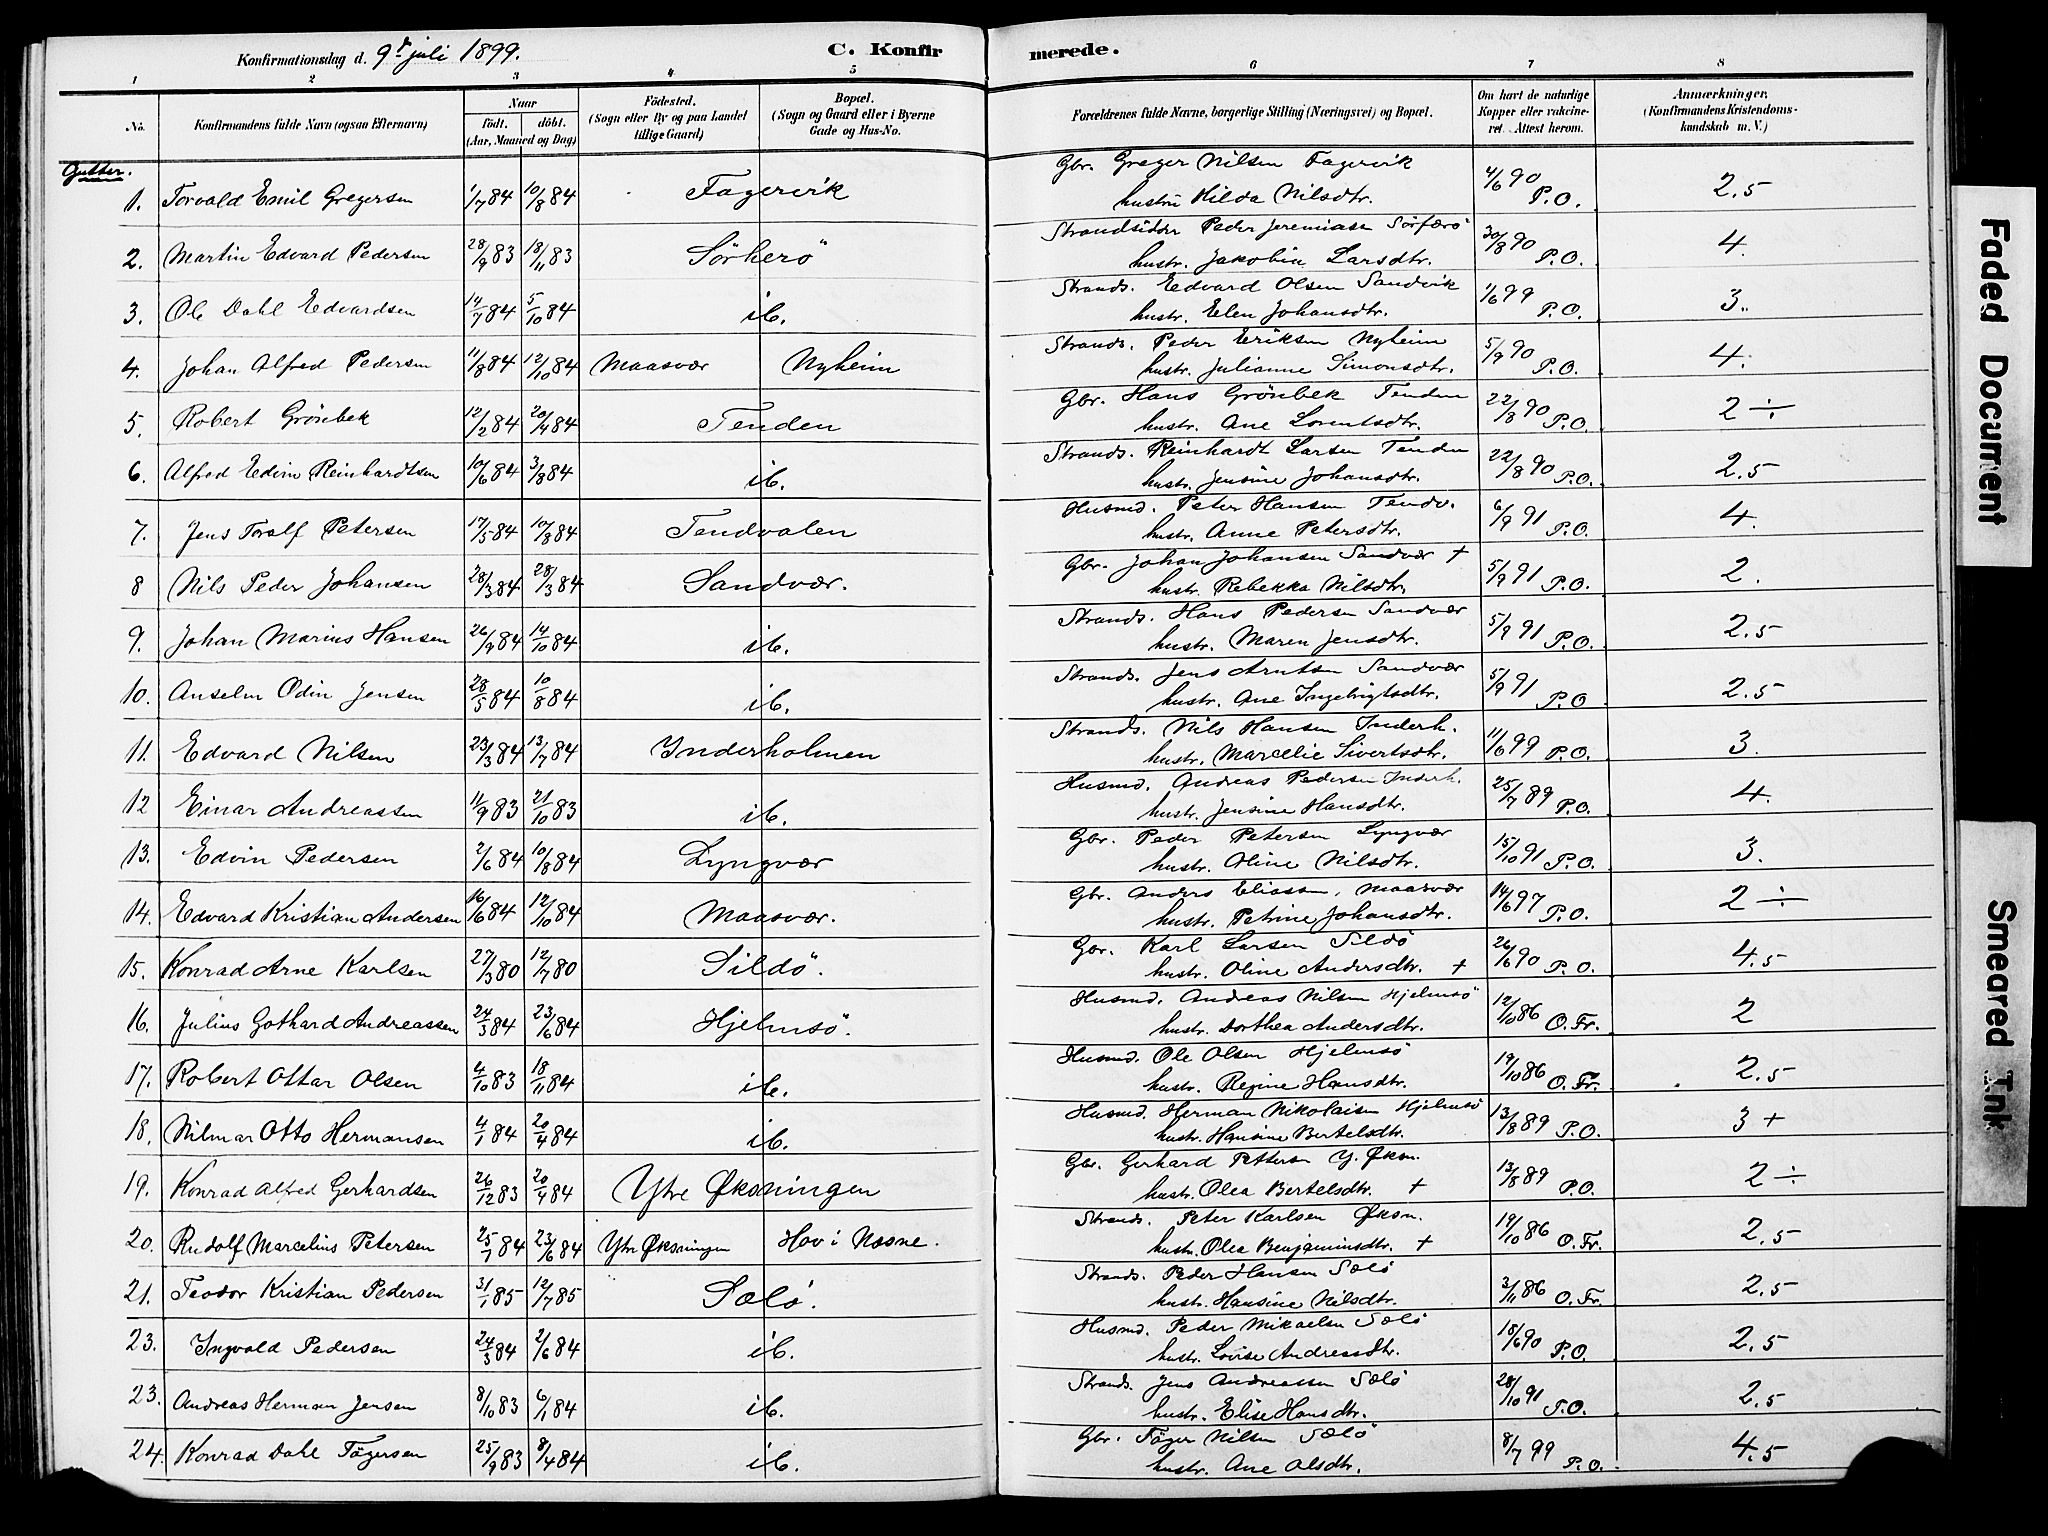 Konfirmationsdag d. 9de juli 1899.
C. Konfirmerede.
1 2 3 4 5 6 7 8
No. Konfirmandens fulde Navn (ogsaa Efternavn) Naar født. døbt. (Aar, Maaned og Dag) Fødested. (Sogn eller By og paa Landet tillige Gaard) Bopæl. (Sogn og Gaard eller i Byerne Gade og Hus-No. Forældrenes fulde Navne, borgerlige Stilling (Næringsvei) og Bopæl. Om havt de naturlige Kopper eller vakcineret. Attest herom. Anmærkninger. (Konfirmandens Kristendomskundskab m. V.)
Gutter.
1. Torvald Emil Gregersen 1/7 84 10/8 84 Fagervik Gbr. Greger Nilsen Fagervik 4/6 90 P.O. 2.5
hustru Hilda Nilsdtr.
2. Martin Edvard Pedersen 28/9 83 18/11 83 Sørherø Strandsidder Peder Jeremiasen Sørfærø 30/8 90 P.O. 4.
hustr. Jakobine Larsdtr.
3. Ole Dahl Edvardsen 14/7 84 5/10 84 ib. Strands. Edvard Olsen Sandvik 1/6 99 P.O. 3.
hustr. Elen Johansdtr.
4. Johan Alfred Pedersen 11/8 84 12/10 84 Maasvær Nyheim Strands. Peder Eriksen Nyheim 5/9 90 P.O. 4.
hustr. Julianne Simonsdtr.
5. Robert Grönbek 12/2 84 20/4 84 Tenden Gbr. Hans Grönbek Tenden 22/8 90 P.O. 2 ÷
hustr. Ane Lorentsdtr.
6. Alfred Edvin Reinhardtsen 10/6 84 3/8 84 ib. Strands. Reinhardt Larsen Tenden 22/8 90 P.O. 2.5
hustr. Jensine Johansdtr.
7. Jens Toralf Petersen 17/5 84 10/8 84 Tendvalen Husmd. Peter Hansen Tendv. 6/9 91 P.O. 4.
hustr. Anne Petersdtr.
8 Nils Peder Johansen 28/3 84 28/3 84 Sandvær. Gbr. Johan Johansen Sandvær + 5/9 91 P.O. 2.
hustr. Rebekka Nilsdtr.
9. Johan Marius Hansen 26/9 84 14/10 84 ib. Strands. Hans Pedersen Sandvær 5/9 91 P.O. 2.5
hustr. Maren Jensdtr.
10. Anselm Odin Jensen 28/5 84 10/8 84 ib. Strands. Jens Arntsen Sandvær 5/9 91 P.O 2.5
hustr. Ane Ingebrigtsdtr.
11. Edvard Nilsen 23/3 84 13/7 84 Ynderholmen Strands. Nils Hansen Inderh. 11/6 99 P.O. 3.
hustr. Marcelie Sivertsdtr.
12 Einar Andreassen 11/9 83 21/10 83 ib. Husmd. Andreas Pedersen Inderh. 25/7 89 P.O. 4.
hustr. Jensine Hansdtr.
13. Edvin Pedersen 2/6 84 10/8 84 Lyngvær Gbr. Peder Petersen Lyngvær 15/10 91 P.O. 3.
hustr. Oline Nilsdtr.
14. Edvard Kristian Andersen 16/6 84 12/10 84 Maasvær. Gbr. Anders Eliassen, Maasvær 14/6 97 P.O. 2 ÷
hustr. Petrine Johansdtr.
15. Konrad Arne Karlsen 27/3 80 12/7 80 Sildö. Gbr. Karl Larsen Sildö 26/6 90 P.O. 4.5
hustr. Oline Andersdtr. +
16. Julius Gothard Andreassen 24/3 84 23/6 84 Hjelmsö. Husmd. Andreas Nilsen Hjelmsö 12/10 86 O.Fr. 2
hustr. Dorthea Andersdtr.
17. Robert Ottar Olsen 4/10 83 18/11 84 ib. Husmd. Ole Olsen Hjelmsö 19/10 86 O.Fr. 2.5
hustr. Regine Hansdtr.
18. Hilmar Otto Hermansen 4/1 84 20/4 84 ib. Husmd. Herman Nikolaisen Hjelmsö 13/8 89 P.O. 3 +
hustr. Hansine Bertelsdtr.
19. Konrad Alfred Gerhardsen 26/12 83 20/4 84 Ytre Øksningen Gbr. Gerhard Pettersen Y. Øksn. 13/8 89 P.O. 2 ÷
hustr. Olea Bertelsdtr. +
20. Rudolf Marcelius Petersen 25/1 84 23/6 84 Ytre Øksningen Hov i Nesne. Strands. Peter Karlsen Øksn. 19/10 86 O.Fr. 2.5
hustr. Olea Benjaminsdtr. +
21. Teodor Kristian Pedersen 31/1 85 12/7 85 Sælö. Strands. Peder Hansen Sælö 3/11 86 O.Fr. 2.5
hustr. Hansine Nilsdtr.
23. Ingvald Pedersen 24/3 84 2/6 84 ib. Husmd. Peder Mikaelsen Sælö 18/6 90 P.O. 2.5
hustr. Lovise Andreasdtr.
23. Andreas Herman Jensen 8/10 83 6/1 84 ib. Strands. Jens Andreassen Sælö 28/10 91 P.O. 2.5
hustr. Elise Hansdtr.
24. Konrad Dahl Tögersen 25/9 83 8/4 84 ib. Gbr. Töger Nilsen Sælö 8/7 99 P.O. 4.5
hustr. Ane Olsdtr.
Faded Document
Smeared Ink